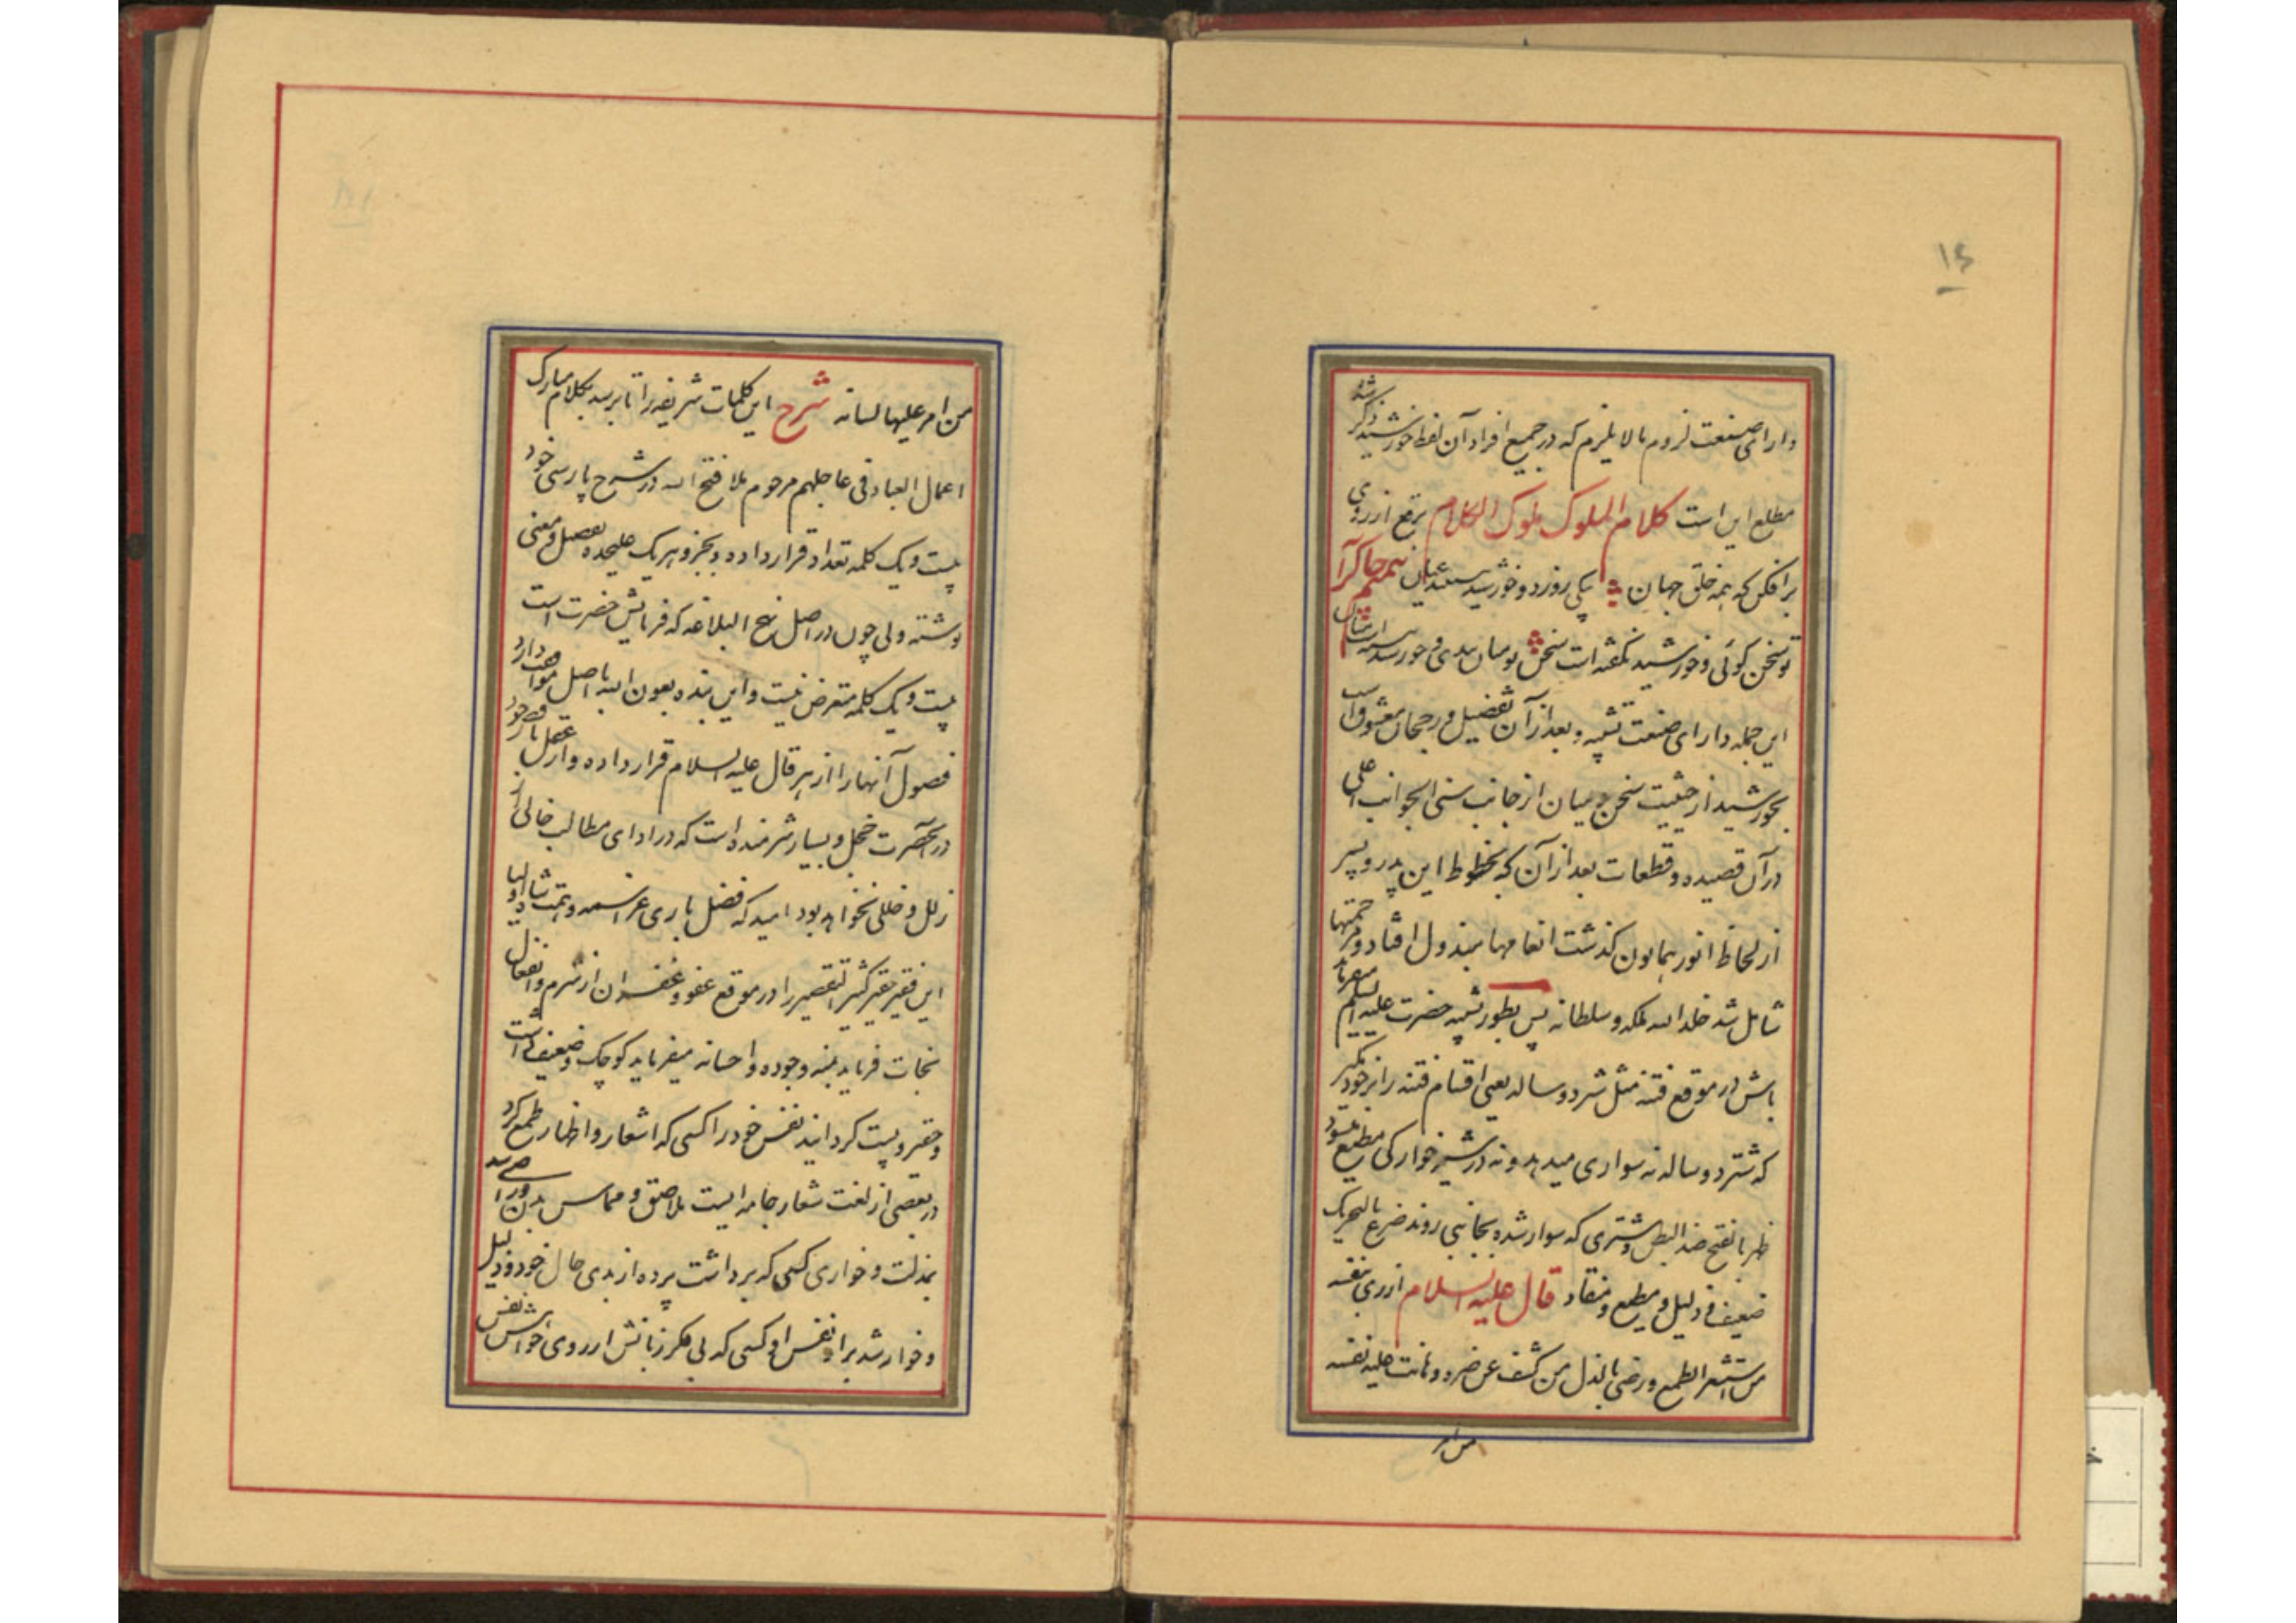 ۱۶
دارای صنعت لزوم مالا یلزم که در جمیع افراد آن لفظ خورشید ذکر شد
مطلع این است کلام الملوک ملوک الکلام برقع از روی
برافکن که همه خلق جهان یکی روز دو خورشید ببینند عیان
تو سخن گوئی و خورشید نگفته است سخن تو میان بندی و خورشید
این جمله دارای صنعت تشبیه و بعد از آن تفضیل و رجحان معشوق است
بخورشید از حیثیت سخن و میان از جانب سنی الجوانب اعلی
در آن قصیده و قطعات بعد از آن که بخطوط این پدر و پسر
از لحاظ انور همایون گذشت انعامها مبذول افتاد و مرحمتها
شامل شد خلد الله ملکه و سلطانه پس بطور تشبیه حضرت علیه السلم میفرماید
باش در موقع فتنه مثل شتر دو ساله یعنی اقسام فتنه را بر خود مگیر
که شتر دو ساله نه سواری میدهد و نه در شیر خوارکی مطیع میشود
ظهر بالفتح ضد البطن و شتری که سوار شده بجانبی روند ضرع بالتحریک
ضعیف و ذلیل و مطیع و منقاد قال علیه السلام ازری بنفسه
من استشعر الطمع و رضی بالذل من کشف عن ضره و هانت علیه نفسه
من امر
من امر علیها لسانه شرح این کلمات شریفه را تا برسد بکلام مبارک
اعمال العباد فی عاجلهم مرحوم ملا فتح الله در شرح پارسی خود
بیست و یک کلمه تعداد قرار داده و بجزو هریک علیحده تفصیل و معنی
نوشته ولی چون در اصل نهج البلاغه که فرمایش حضرت است
بیست و یک کلمه متعرض نیست و این بنده بعون الله با اصل موافقت دارد
فصول آنها را از هر قال علیه السلام قرار داده و از عمل ناقص خود
در آنحضرت خجل و بسیار شرمنده است که در ادای مطالب خالی از
زلل و خللی نخواهد بود امید که فضل باری عز اسمه و همت شاه اولیا
این فقیر حقیر کثیر التقصیر را در موقع عفو و غفران از شرم و انفعال
نجات فرماید بمنه و جوده و احسانه میفرماید کوچک و ضعیف داشت
و حقیر و پست گردانید نفس خود را کسی که اشعار و اظهار طمع کرد
در بعضی از لغت شعار جامه ایست ملاصق و مماس بدن و راضی شد
بمذلت و خواری کسی که برداشت پرده از بدی حال خود و ذلیل
و خوار شد براو نفس او کسی که بی فکر زبانش از روی خواهش نفس